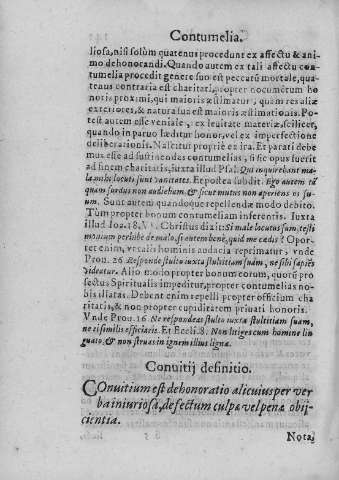 Contumelia.
liosa, nisi solùm quatenus procedunt ex affectu & ani
mo dehonorandi. Quando autem ex tali affectu con
tumelia procedit genere suo est peccatũ mortale, qua
tenus contraria est charitati, propter nocumẽtum ho
noris proximi, qui maioris æstimatur, quam res aliæ
exteriores, & natura sua est maioris æstimationis. Po-
test autem esse veniale, ex leuitate materiæ, scilicet,
quando in paruo læditur honor, vel ex imperfectione
deliberationis. Nascitur propriè ex ira. Et parati debe
mus esse ad sustinendas contumelias, si sic opus fuerit
ad finem charitatis, iuxta illud Psal. Qui inquirebant ma-
la mihi locuti sunt vanitates. Et postea subdit. Ego autem tã
quam surdus non audiebam, & sicut mutus non aperiens os su-
um. Sunt autem quandoque repellendæ modo debito.
Tùm propter bonum contumeliam inferentis. Iuxta
illud Ioa. 18. Christus dixit: Si male locutus sum, testi
monium perhibe de malo, si autem benè, quid me cædis? Opor-
tet enim, vt talis hominis audacia reprimatur, vnde
Prou. 26. Responde stulto iuxta stultitiam suam, ne sibi sapiẽs
videatur. Alio modo propter bonum eorum, quorũ pro
fectus Spiritualis impeditur, propter contumelias no-
bis illatas. Debent enim repelli propter officium cha
ritatis, & non propter cupiditatem priuati honoris.
Vnde Prou. 26. Ne respondeas stulto iuxta stultitiam suam,
ne ei similis efficiaris. Et Eccli. 8. Non litiges cum homine lin
guato, & non struas in ignem illius ligna.
Conuitij definitio.
Conuitium est dehonoratio alicuius per ver
ba iniuriosa, defectum culpæ vel pœnæ obij-
cientia.
Nota,